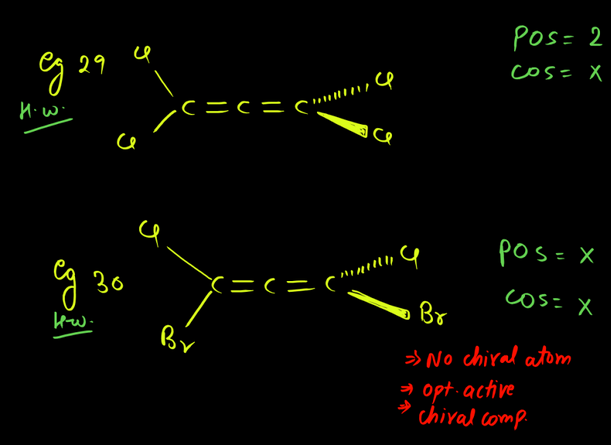 Eg 29
H.W.
Cl
Cl
C = C = C
Cl
Cl
POS = 2
COS = X
Eg 30
H.W.
Cl
Br
C = C = C
Cl
Br
POS = X
COS = X
⇒ No chiral atom
⇒ opt. active
⇒ chiral comp.